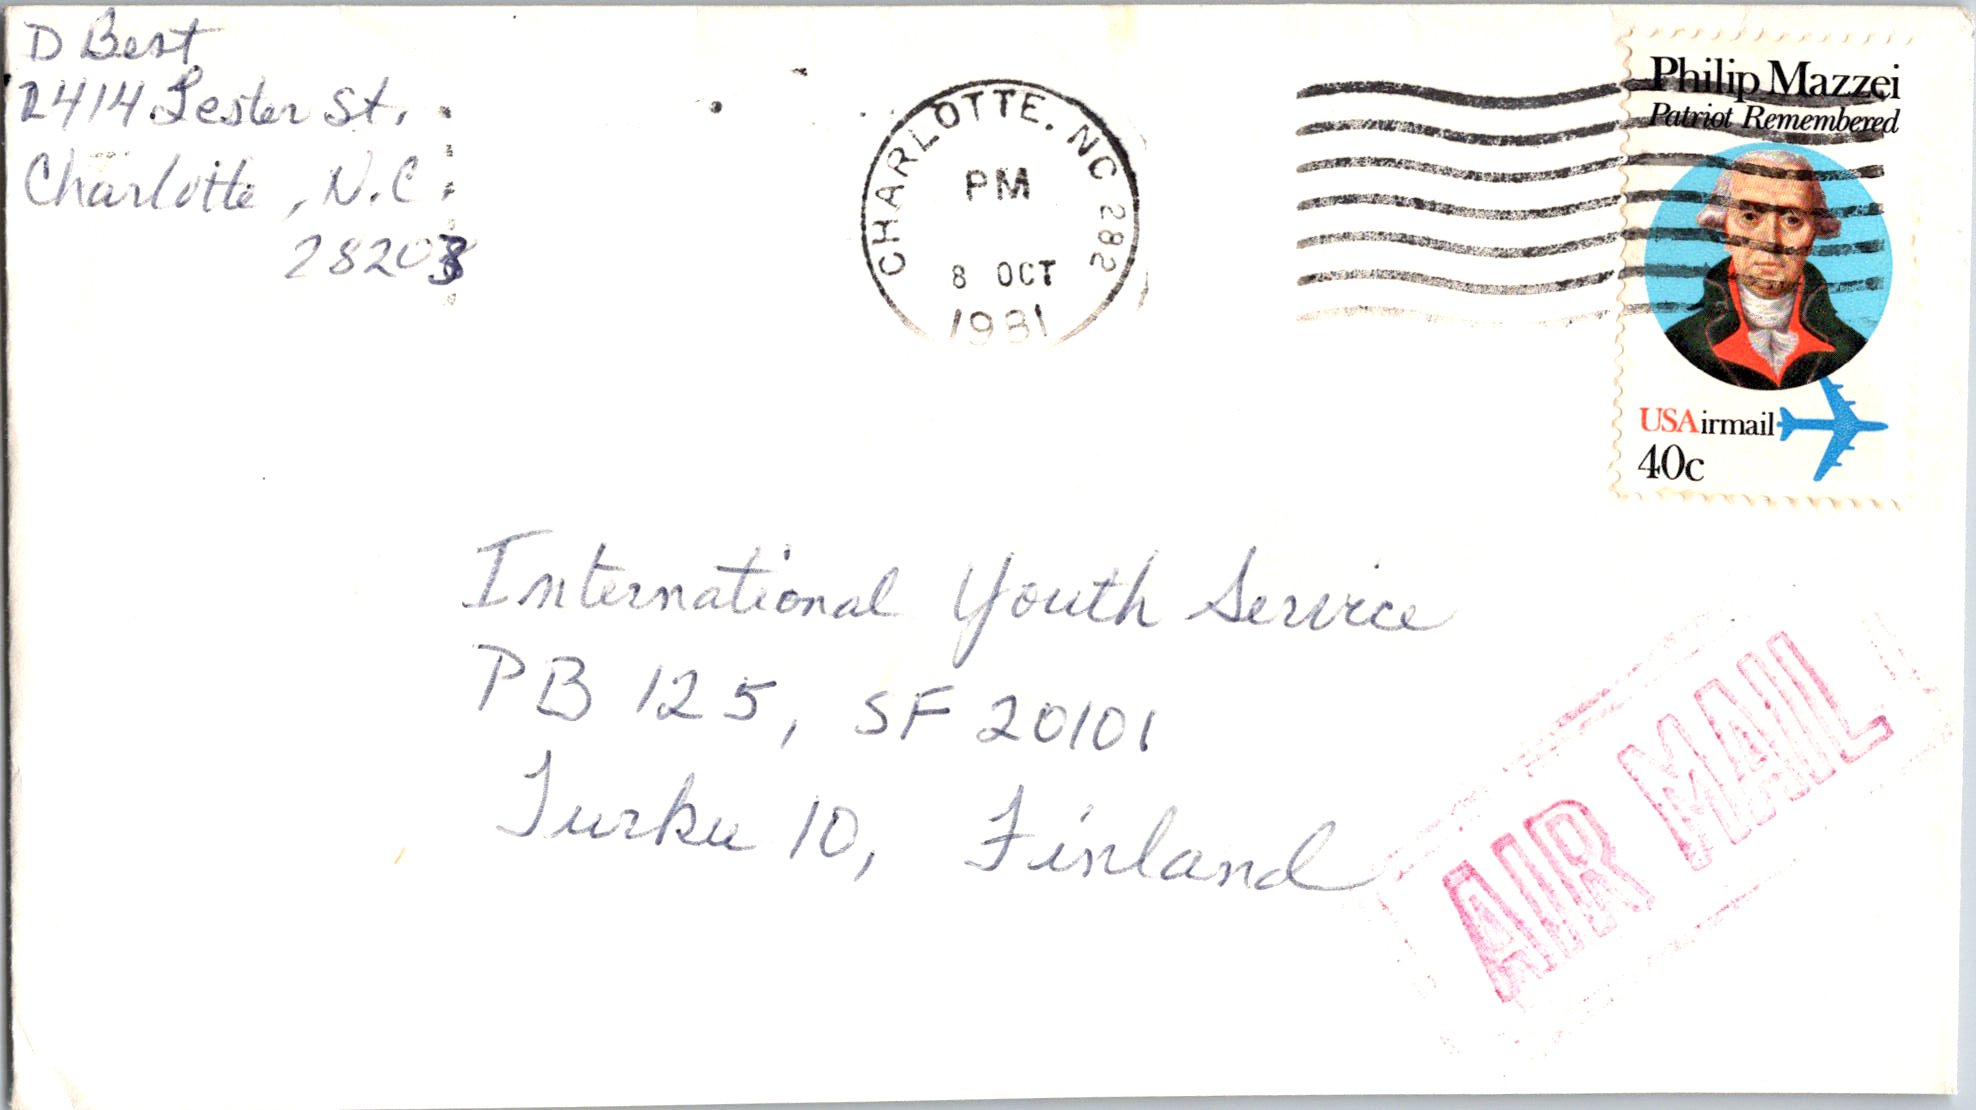 D Best
2414 Lester St.
Charlotte, N.C.
28208
CHARLOTTE, NC 282
PM
8 OCT
1981
Philip Mazzei
Patriot Remembered
USAirmail
40c
International Youth Service
PB 125, SF 20101
Turku 10, Finland
AIR MAIL